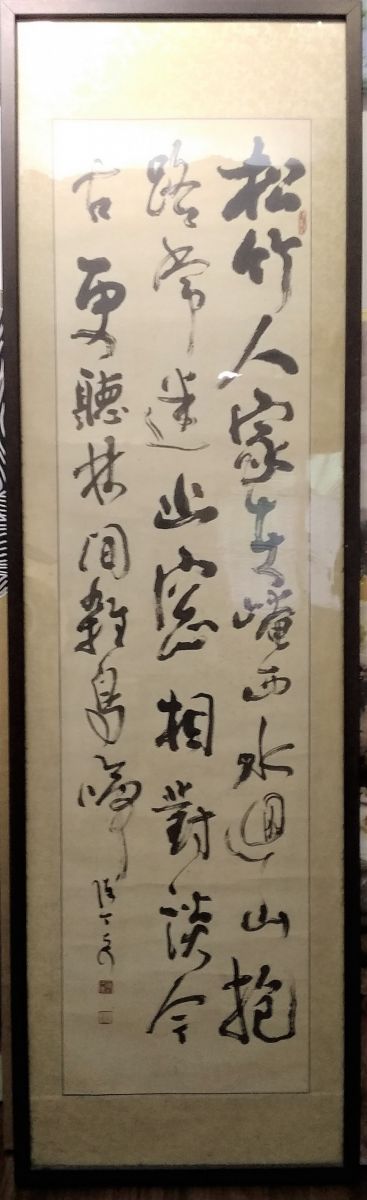 松竹人家崦西水迴山抱
路常迷幽窗相對談今
古更聽林間雜鳥啼